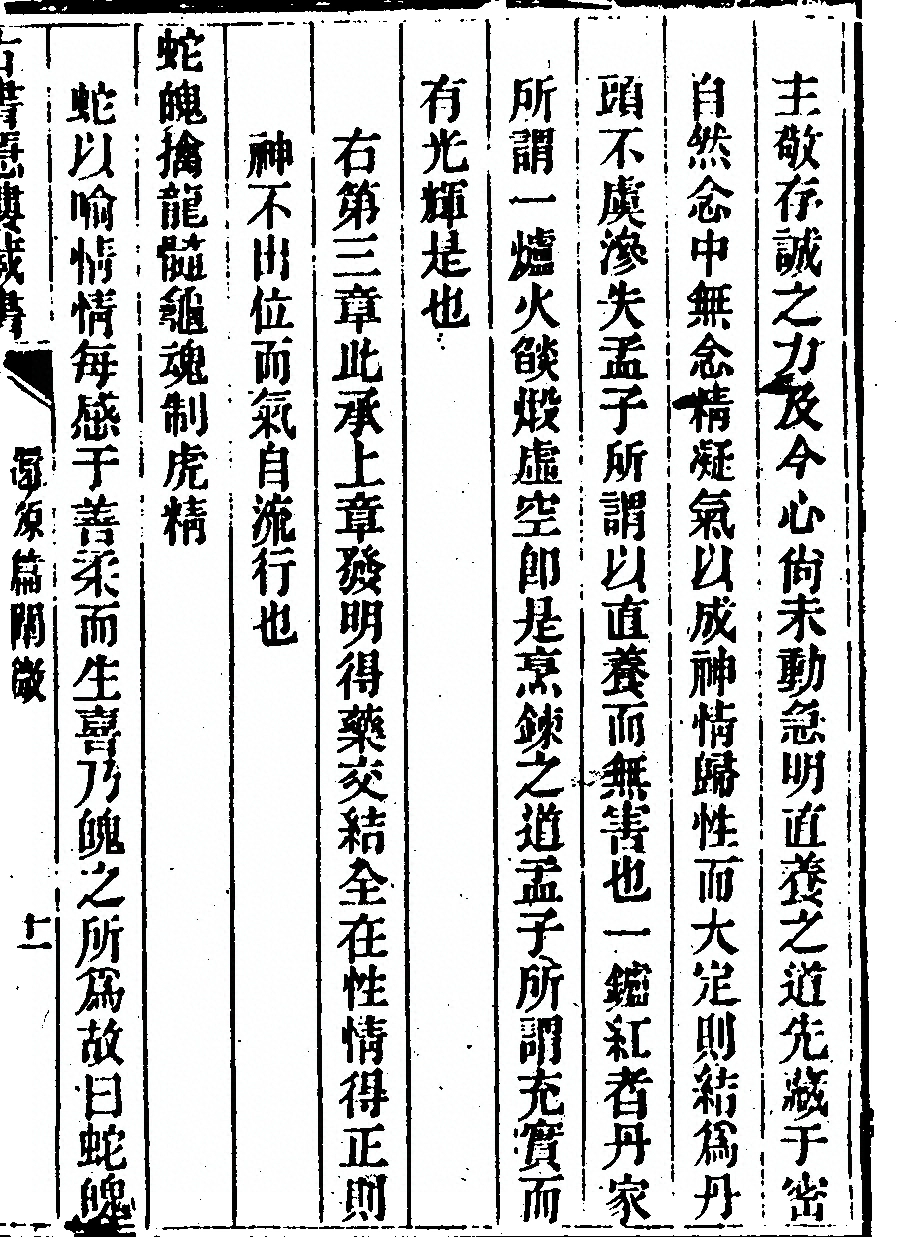 主敬存誠之力及今心尚未動急明直養之道先藏于密
自然念中無念精凝氣以成神情歸性而大定則結爲丹
頭不虞滲失孟子所謂以直養而無害也一鑪紅者丹家
所謂一爐火燄煅虛空卽是烹鍊之道孟子所謂充實而
有光輝是也
右第三章此承上章發明得藥交結全在性情得正則
神不出位而氣自流行也
蛇魄擒龍髓龜魂制虎精
蛇以喻情情每感于善柔而生喜乃魄之所爲故曰蛇魄
古書隱樓藏書
篇闡微
十一